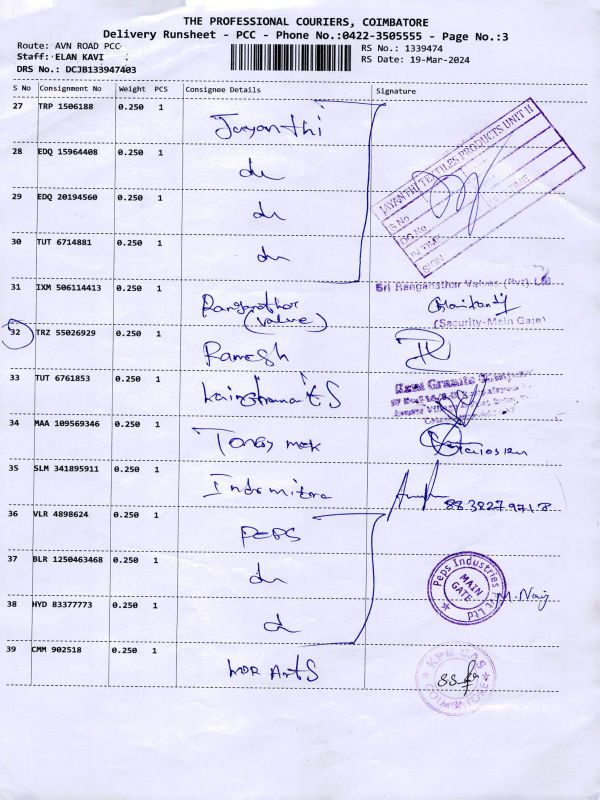 THE PROFESSIONAL COURIERS, COIMBATORE
Delivery Runsheet - PCC - Phone No.:0422-3505555 - Page No.:3
Route: AVN ROAD PCC
Staff: ELAN KAVI
DRS No.: DCJB133947403
RS No.: 1339474
RS Date: 19-Mar-2024
S No Consignment No Weight PCS Consignee Details Signature
27 TRP 1506188 0.250 1
Jayanthi
28 EDQ 15964408 0.250 1
du
29 EDQ 20194560 0.250 1
du
30 TUT 6714881 0.250 1
du
JAYANTHI TEXTILES PRODUCTS UNIT II
S.No
DG.No
IN TIME
SIGN
31 IXM 506114413 0.250 1
Ranganathar
(Valve)
Sri Ranganathar Valves (Pvt) Ltd
(Security-Main Gate)
32 TRZ 55026929 0.250 1
Ramesh
33 TUT 6761853 0.250 1
34 MAA 109569346 0.250 1
35 SLM 341895911 0.250 1
Indomitra
36 VLR 4898624 0.250 1
PEPS
37 BLR 1250463468 0.250 1
du
38 HYD 83377773 0.250 1
d
Peps Industries Pvt Ltd
MAIN GATE
39 CMM 902518 0.250 1
KPR CAS
COIMBATORE